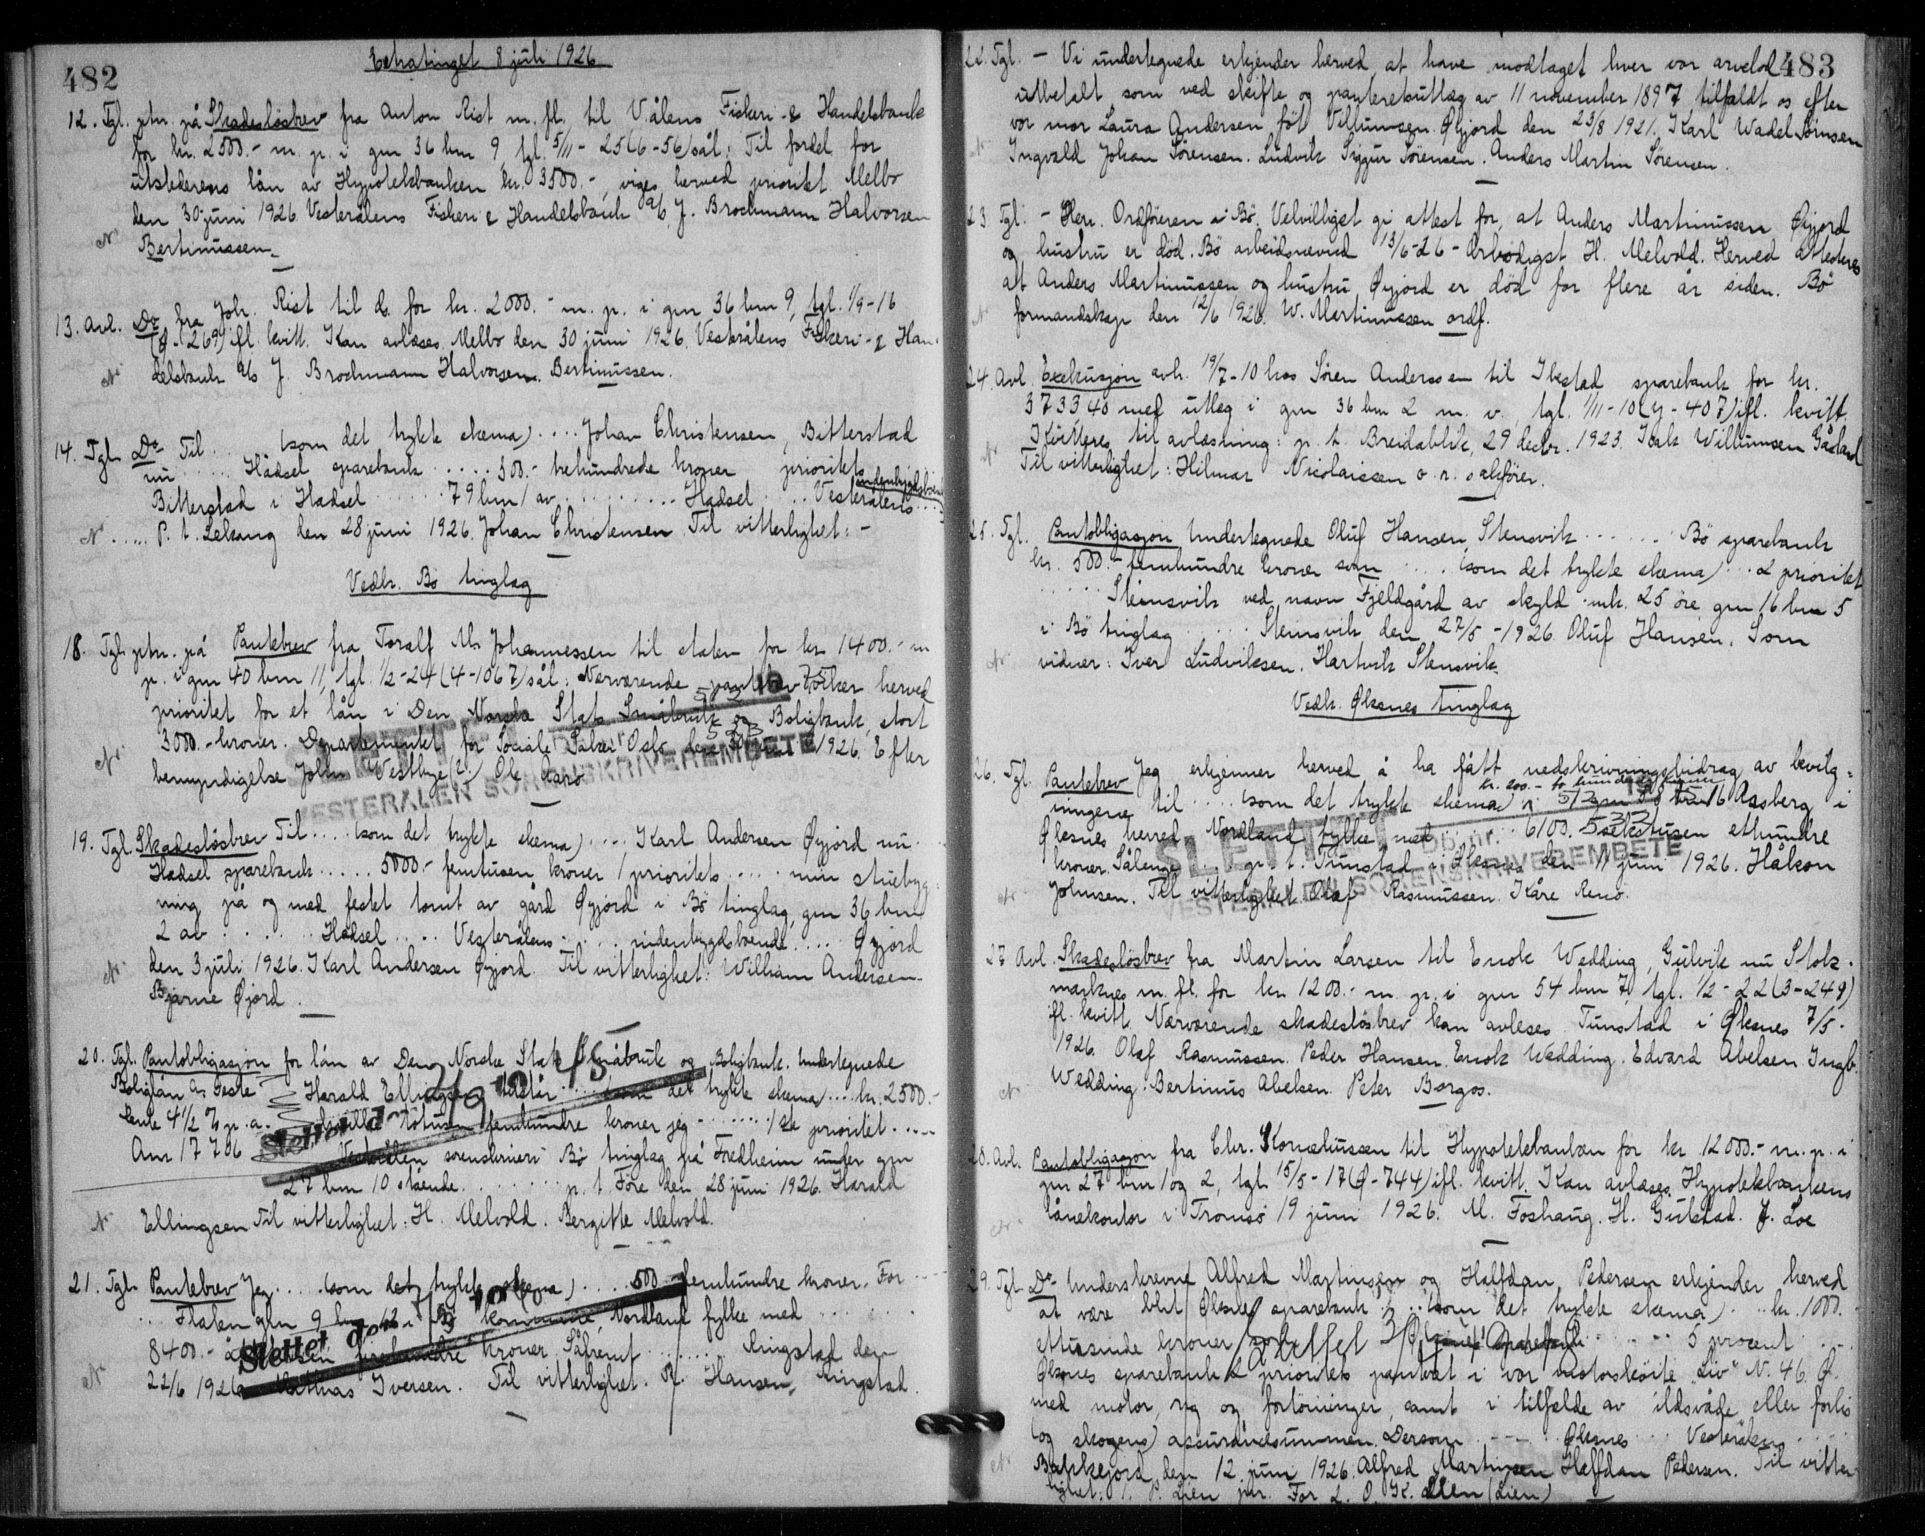 482
Extratinget 8 juli 1926
12. Tgl. ptn. på Skadesløsbrev fra Anton Rist m. fl. til V.ålens Fiskeri- & Handelsbank
for kr. 2500.- m. p. i gnr 36 bnr 9, tgl. 5/11 - 25 (6-56) sål: Til fordel for
utstederens lån av Hypotekbanken kr. 3500.-, viges herved prioritet Melbo
den 30 juni 1926. Vesterålens Fiskeri & Handelsbank a/s J. Brochmann Halvorsen
Bertinussen.
13. Avl. Do fra Joh. Rist til do. for kr. 2000.- m. p. i gnr 36 bnr 9, tgl. 1/9-16
269) ifl. kvitt. Kan avlæses. Melbo den 30 juni 1926. Vesterålens Fiskeri- & Han-
delsbank a/s J. Brochmann Halvorsen. Bertinussen.
14. Tgl. Do Til .... (som det trykte skema) .... Johan Christensen, Bitterstad
nu .... Hadsel sparebank ..... 300.- trehundrede kroner prioritets
Bitterstad i Hadsel ...... 79 bnr 1 av .......... Hadsel .... Vesterålens indenbygdsboende
..... P. t. Lekang den 28 juni 1926. Johan Christensen. Til vitterlighet: -
Vedk. Bø tinglag
18. Tgl. ptn. på Pantebrev fra Toralf M. Johannessen til staten for kr 1400.- m
p. i gnr 40 bnr 11, tgl. 1/2-24 (4-1067) sål: Nærværende pantebrev viker herved
prioritet for et lån i Den Norske Stats Småbruk og Boligbank, stort
3000.- kroner. Departementet for Sociale Saker Oslo den juni 1926. Efter
bemyndigelse Johs Vestbye (?) Ole Aarø
SLETTET
VESTERÅLEN SORENSKRIVEREMBETE
19. Tgl. Skadesløsbrev Til .... (som det trykte skema) .... Karl Andersen Øyjord nu
Hadsel sparebank ..... 5000.- femtusen kroner 1 prioritets .... min stuebyg-
ning på og med festet tomt av gård Øyjord i Bø tinglag, gnr 36 bnr
2 av ....... Hadsel .... Vesterålens .... indenbygdsboende .... Øyjord
den 3 juli 1926. Karl Andersen Øyjord. Til vitterlighet: William Andersen
Bjarne Øjord.
20. Tgl. Pantobligasjon for lån av Den Norske Stats Småbruk og Boligbank. Undertegnede
Boliglån Harald Ellingsen tilstår .... (som det trykte skema) .... kr. 2500.-
rente 4 1/2 % p. a. totusen femhundre kroner jeg ....... 1ste prioritet .....
Anr 17706 Vesterålen sorenskriveri Bø tinglag på Fredheim under gnr
27 bnr 10 stående ........ p. t. Føre den 28 juni 1926. Harald
Ellingsen. Til vitterlighet: H. Melvold. Bergitte Melvold.
Slettet d.
21. Tgl. Pantebrev Jeg .... (som det trykte skema) .... 500 - femhundre kroner. For ....
.. Flaten gnr 9 bnr 12 i Bø kommune, Nordland fylke med .......
8400.- kroner. Såfremt ...... Ringstad den
22/6 1926. Mathias Iversen. Til vitterlighet. R. Hansen, Ringstad.
Slettet d.
483
22. Tgl. - Vi undertegnede erkjender herved at have modtaget hver vor arvelod
utbetalt som ved skifte og panteretsutlæg av 11 november 1897 tilfaldt os efter
vor mor Laura Andersen født Villumsen. Øyjord den 23/8 1921. Karl Wadel Sørensen
Ingvald Johan Sørensen. Ludvik Siggur Sørensen. Anders Martin Sørensen.
23. Tgl. - Herr. Ordføreren i Bø. Velvilligst gi attest for, at Anders Martinussen Øyjord
og hustru er død. Bø arbeidsnævnd 13/6-26 - Ærbødigst H. Melvold. Herved attesteres
at Anders Martinussen og hustru Øyjord er død for flere år siden. Bø
formandskap den 12/6 1926. W. Martinussen ordf.
24. Avl. Exekusjon avh. 19/7-10 hos Søren Anderssen til Ibestad sparebank for kr.
373340 med utlæg i gnr 36 bnr 2 m. v., tgl. 1/11-10 (Y-407) ifl. kvitt.
Kvitteres til avlæsning: p. t. Breidablik, 29 decbr. 1923. Isak Willumsen Gåsland
Til vitterlighet: Hilmar Nicolaissen o. r. sakfører.
25. Tgl. Pantobligasjon Undertegnede Oluf Hansen, Steinsvik ...... Bø sparebank
kr. 500.- femhundre kroner som .... (som det trykte skema) ... 2 prioritet
..... Steinsvik ved navn Fjeldgård av skyld mk. 25 øre gnr 16 bnr 5
i Bø tinglag ..... Steinsvik den 27/5-1926. Oluf Hansen. Som
vidner: Iver Ludviksen. Hartvik Steinsvik
Vedk. Øksnes tinglag
26. Tgl. Pantebrev Jeg erkjenner herved å ha fått nedskrivningsbidrag av bevilg-
ningene til .... (som det trykte skema) bnr 16 Aasberg i
Øksnes herred Nordland fylke med .... 6100.- sekstusen etthundre
kroner. Sålenge .... p. t. Tunstad i Øksnes den 11 juni 1926. Håkon
Johnsen. Til vitterlighet Olaf Rasmussen. Kåre Renø.
SLETTET
Db. nr.
VESTERÅLEN SORENSKRIVEREMBETE
27. Avl. Skadesløsbrev fra Martin Larsen til Enok Wedding, Gulvik nu Stok-
marknes m. fl. for kr 1200.- m. p. i gnr 54 bnr 7, tgl. 1/2-22 (3-249)
ifl. kvitt. Nærværende skadesløsbrev kan avleses. Tunstad i Øksnes 7/5-
1926. Olaf Rasmussen. Peder Hansen. Enok Wedding. Edvard Abelsen. Ingb.
Wedding. Bertinus Abelsen. Peter Borgos.
28. Avl. Pantobligasjon fra Chr. Korneliussen til Hypotekbanken for kr 12000.- m. p. i
gnr 27 bnr 1 og 2, tgl. 15/5-17 (Ø-744) ifl. kvitt. Kan avlæses. Hypotekbankens
lånekontor i Tromsø 19 juni 1926. M. Foshaug. H. Gulstad. J. Loe
29. Tgl. Do Underskrevne Alfred Martinsen og Halfdan Pedersen erkjender herved
at være blit Øksnes sparebank .... (som det trykte skema) .... kr. 1000.-
ettusinde kroner ...... 5 procent ....
Øksnes sparebank 2 prioritets panteret i vor motorskøite "Liv" N. 46. Ø.
med motor, rig og fortøininger, samt i tilfælde av ildsvåde eller forlis
(og skogens) assurancesummen. Dersom ...... Øksnes ... Vesterålens ....
Barkkejord den 12 juni 1926. Alfred Martinsen Halfdan Pedersen. Til vitter-
lighet: P. Lien jnr. For L. O. K. Lien (Lien)